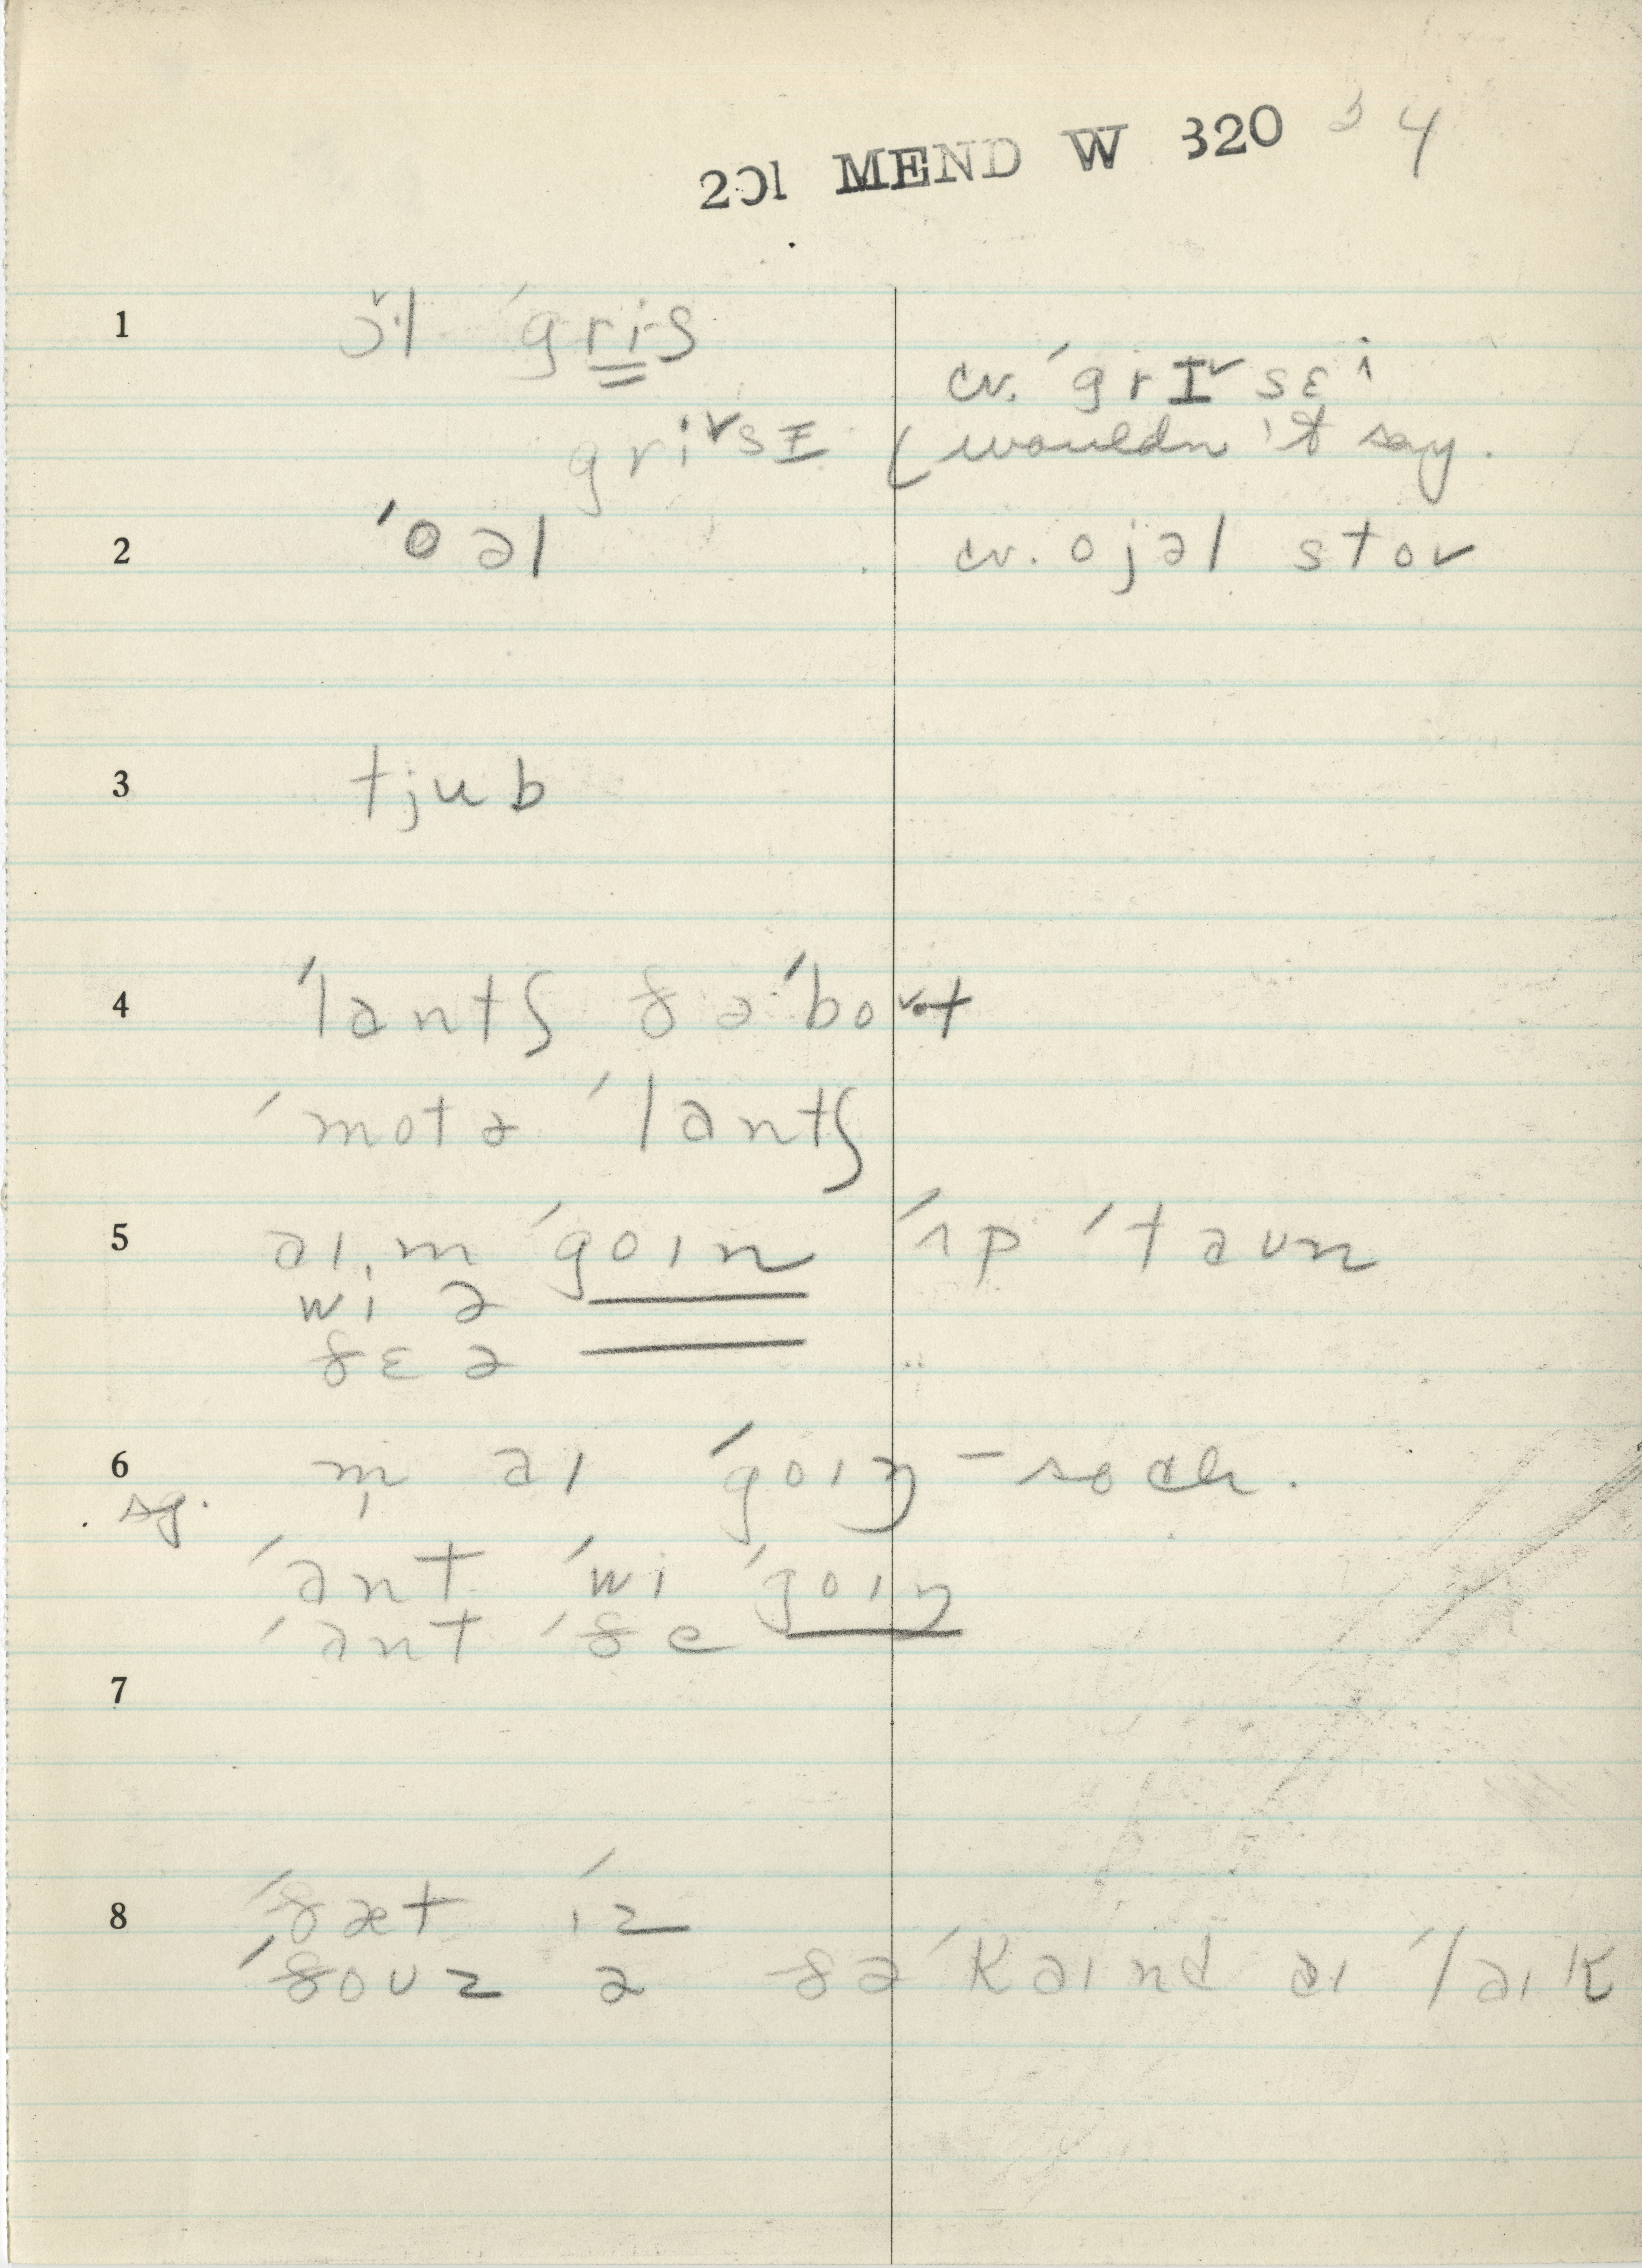 201 MEND W 320 34
1 ɔ˅l ˈgris
cv. ˈgrɪ˅sɛi
gri˅sɪ (wouldn't say.
2 ˈoəl cv. ojəl stov
3 tjub
4 ˈlantʃ ðəˈbo˅t
ˈmotə ˈlantʃ
5 aɪ,m ˈgoɪn ˈʌp ˈtaun
wi ə
ðɛ ə
6 m̩ aɪ ˈgoɪŋ – so ch.
sg.
ˈant ˈwi ˈgoɪŋ
ˈant ˈðe
7
8 ˈðæt ˈɪz
ˈðouz ə ðəˈkaɪnd aɪ ˈlaɪk